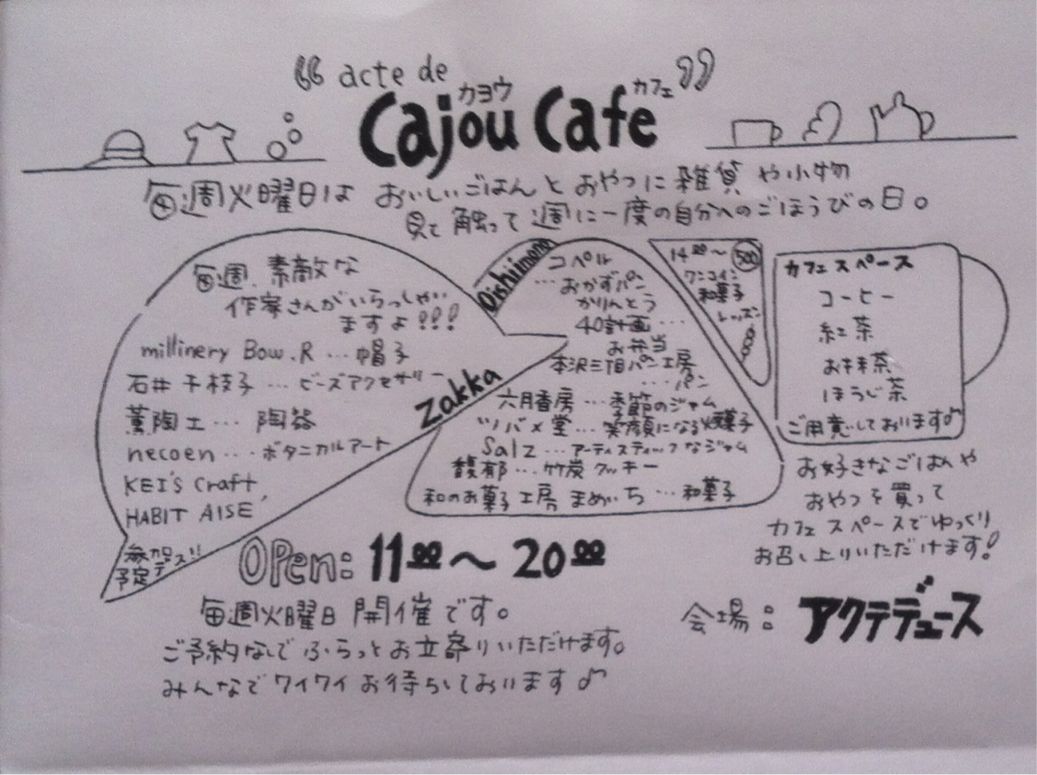 “ acte de
カヨウ カフェ
Cajou Cafe ”
毎週火曜日は おいしいごはんとおやつに 雑貨 や小物
見て 触って 週に一度の自分へのごほうびの日。
毎週、素敵な
作家さんがいらっしゃい
ますよ!!!
millinery Bow.R … 帽子
石井 千枝子 … ビーズアクセサリー
薫陶土 … 陶器
necoen … ボタニカルアート
KEI's Craft,
HABIT AISE
参加
予定デス!!
Zakka
Oishiimono
コペル
… おかずパン
かりんとう
40計画 …
お弁当
本沢三丁目パン工房
… パン
六月香房 … 季節のジャム
ツバメ堂 … 笑顔になる焼菓子
Salz … アーティスティックなジャム
馥郁 … 竹炭クッキー
和のお菓子工房 まめいち … 和菓子
14:00〜 500
ワンコイン
和菓子
レッスン
カフェスペース
コーヒー
紅茶
お抹茶
ほうじ茶
ご用意しております♪
お好きなごはんや
おやつを買って
カフェスペースでゆっくり
お召し上りいただけます!
OPen: 11:00 〜 20:00
毎週火曜日 開催です。
ご予約なしで ふらっとお立寄りいただけます。
みんなでワイワイ お待ちしております♪
会場: アクテデュース